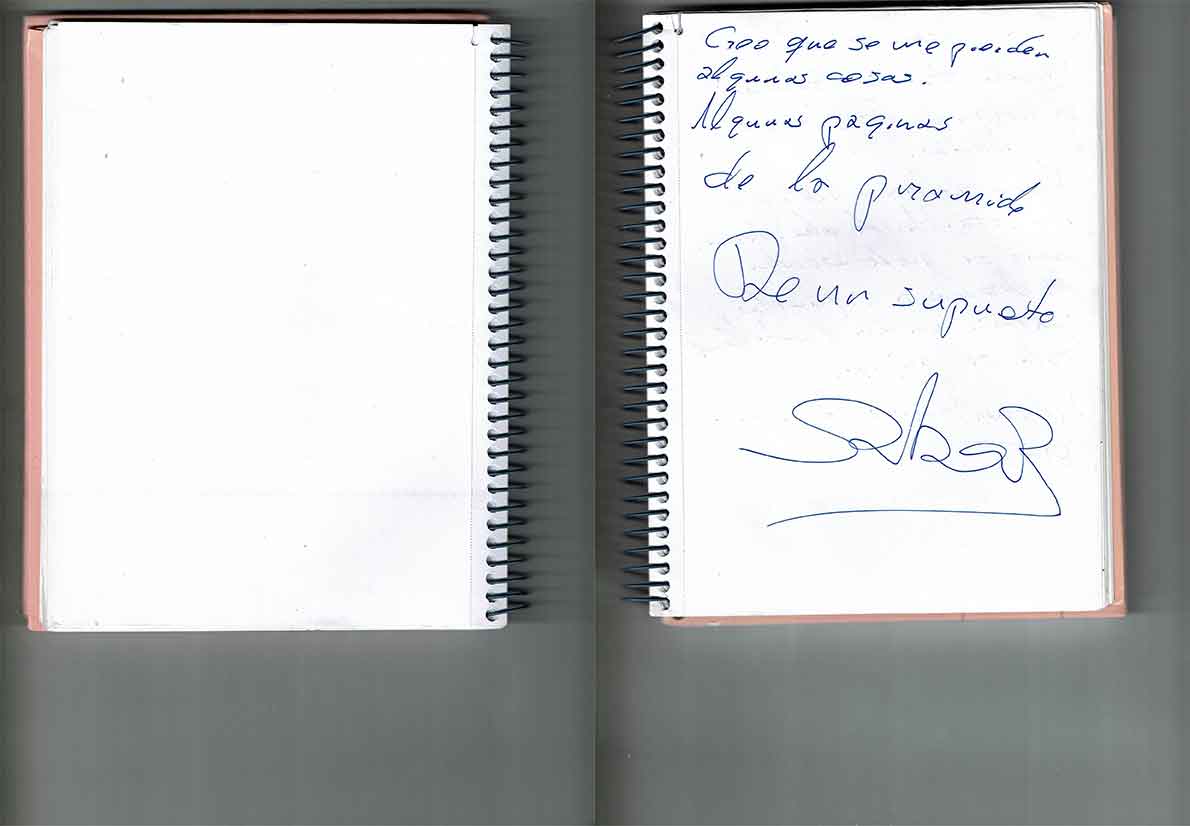 Creo que se me pierden
algunas cosas.
Algunas paginas
de la piramide
De un supuesto